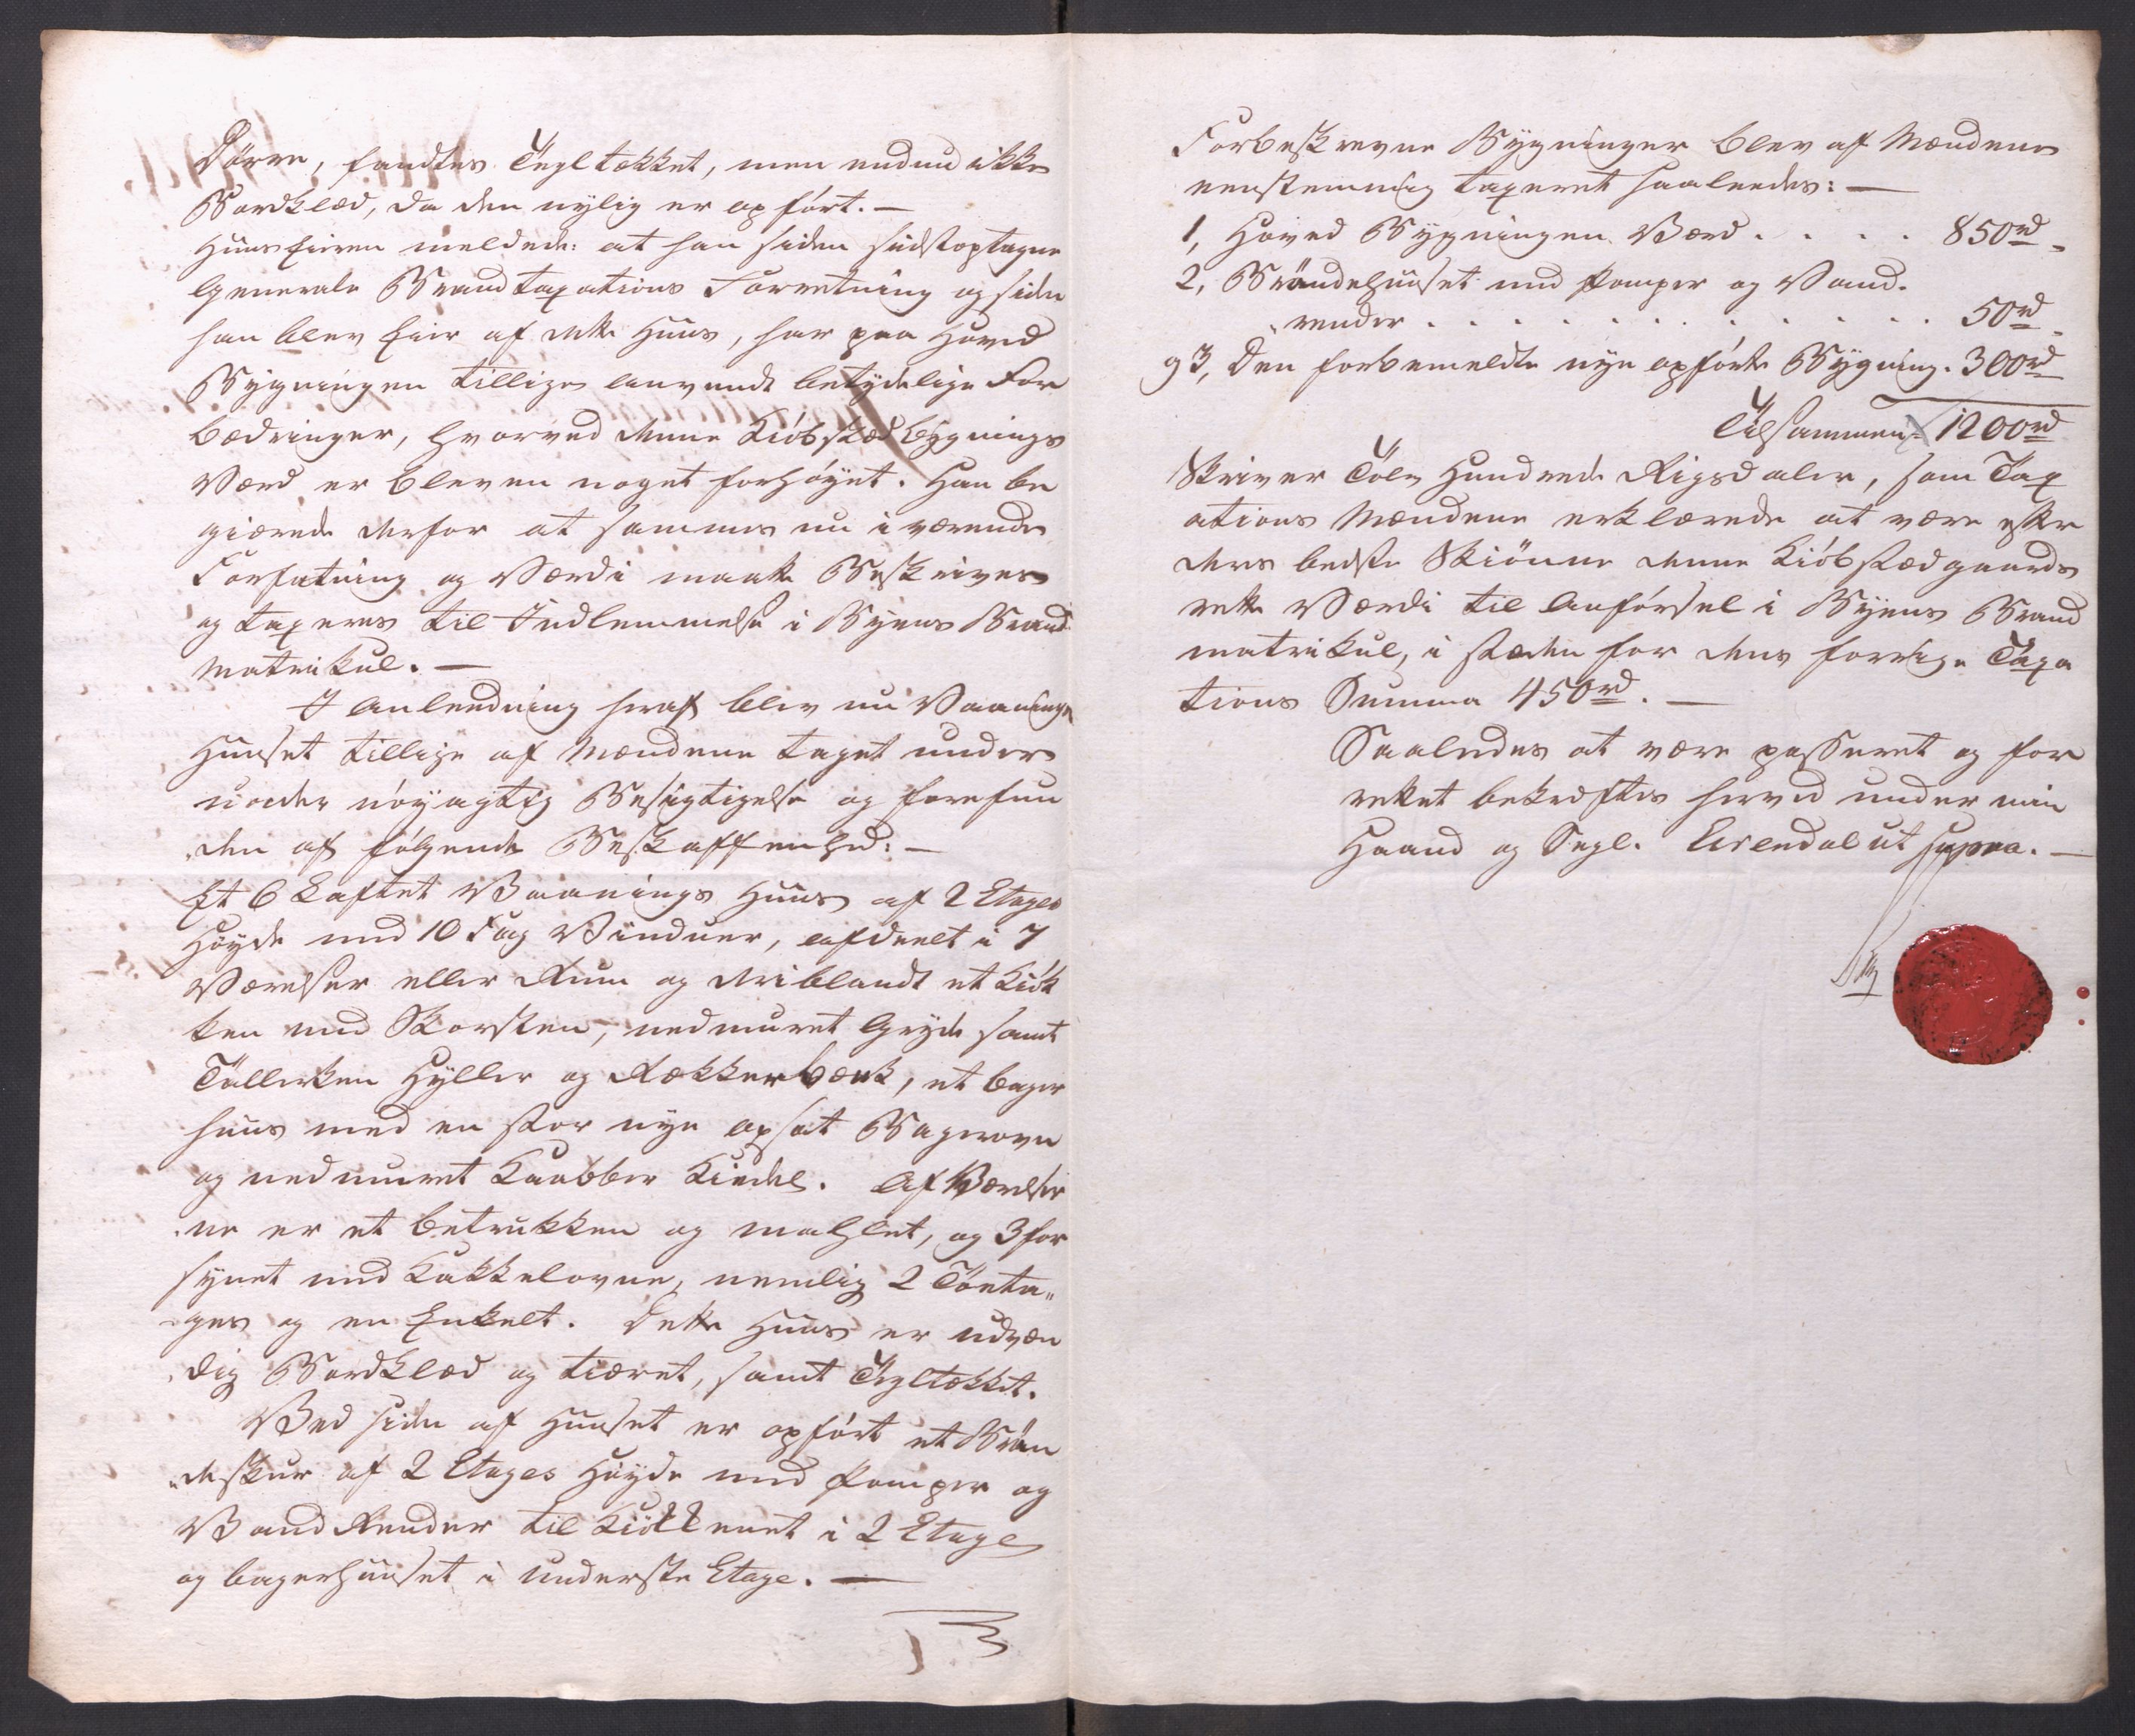 Dörre, fandtes Tegltækket, men endnu ikke
Bordklæd, da den nylig er opfört. —
Huus Eieren meldede: at han siden sidstoptagne
Generale Brandtaxations Forretning og siden
han blev Eier af dette Huus, har paa Hoved
Bygningen tillige anvendt betydelige For
bedringer, hvorved denne Kiöbstæd bygnings
Værd er bleven noget forhöyet. Han be
giærede derfor at samme nu i værende
Forfatning og Værdi maatte Beskrives
og taxeres til Indlemmelse i Byens Brand
Matrikul. —
I Anleedning heraf blev nu Vaanings
Huuset tillige af Mændene taget under
nöyagtig Besigtigelse og forefun
den af fölgende Beskaffenhed: —
Et 6 Laftet Vaanings Huus af 2 Etages
Höyde med 10 Fag Vinduer, afdeelt i 7
Værelser eller Rum og deriblandt et Kiök
ken med Skorsteen, nedmuret Gryde samt
Tallerken Hyller og Rækkerbænk, et bager
huus med en stor nye opsat Bagerovn
og nedmuret Kaabber Kiedel. Af Værelser
ne er et betrukken og mahlet, og 3 for
synet med Kakkelovne, nemlig 2 Toeta„
ges og en Enkelt. Dette Huus er udvæn
dig Bordklæd og tiæret, samt Tegltækket.
Ved siden af Huuset er opfört et Brön
deskur af 2 Etages Höyde med Pomper og
Vand Render til Kiökkenet i 2 Etage
og bagerhuuset i underste Etage. —
Forbeskrevne Bygninger blev af Mændene
eenstemmig taxeret saaleedes: —
1, Hoved Bygningen Værd . . . . 850 rd
2, Bröndehuuset med Pomper og Vand-
render . . . . . . . . . . 50 rd
og 3, Den forbemeldte nye opförte Bygning. 300 rd
Tilsammen 1200 rd
Skriver Tolv Hundrede Rigsdaler, som Tax
ations Mændene erklærede at være efter
deres bedste Skiönne denne Kiöbstædgaards
rette Værdi til Anförsel i Byens Brand
matrikul, i stæden for dens forrige Taxa
tions Summa 450 rd. —
Saaledes at være passeret og for
rettet bekræftes herved under min
Haand og Segl. Arendal ut supra. —